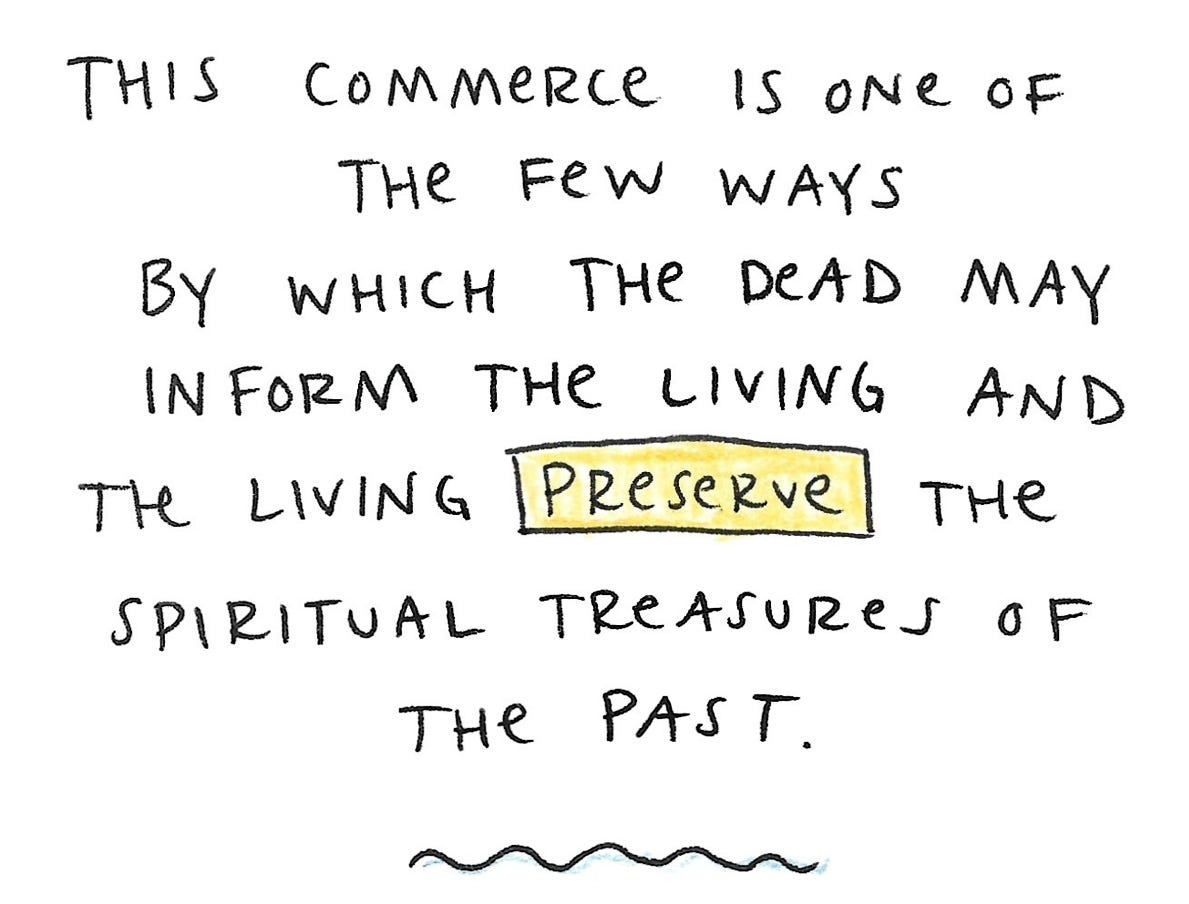 THIS COMMERCE IS ONE OF
THE FEW WAYS
BY WHICH THE DEAD MAY
INFORM THE LIVING AND
THE LIVING PRESERVE THE
SPIRITUAL TREASURES OF
THE PAST.